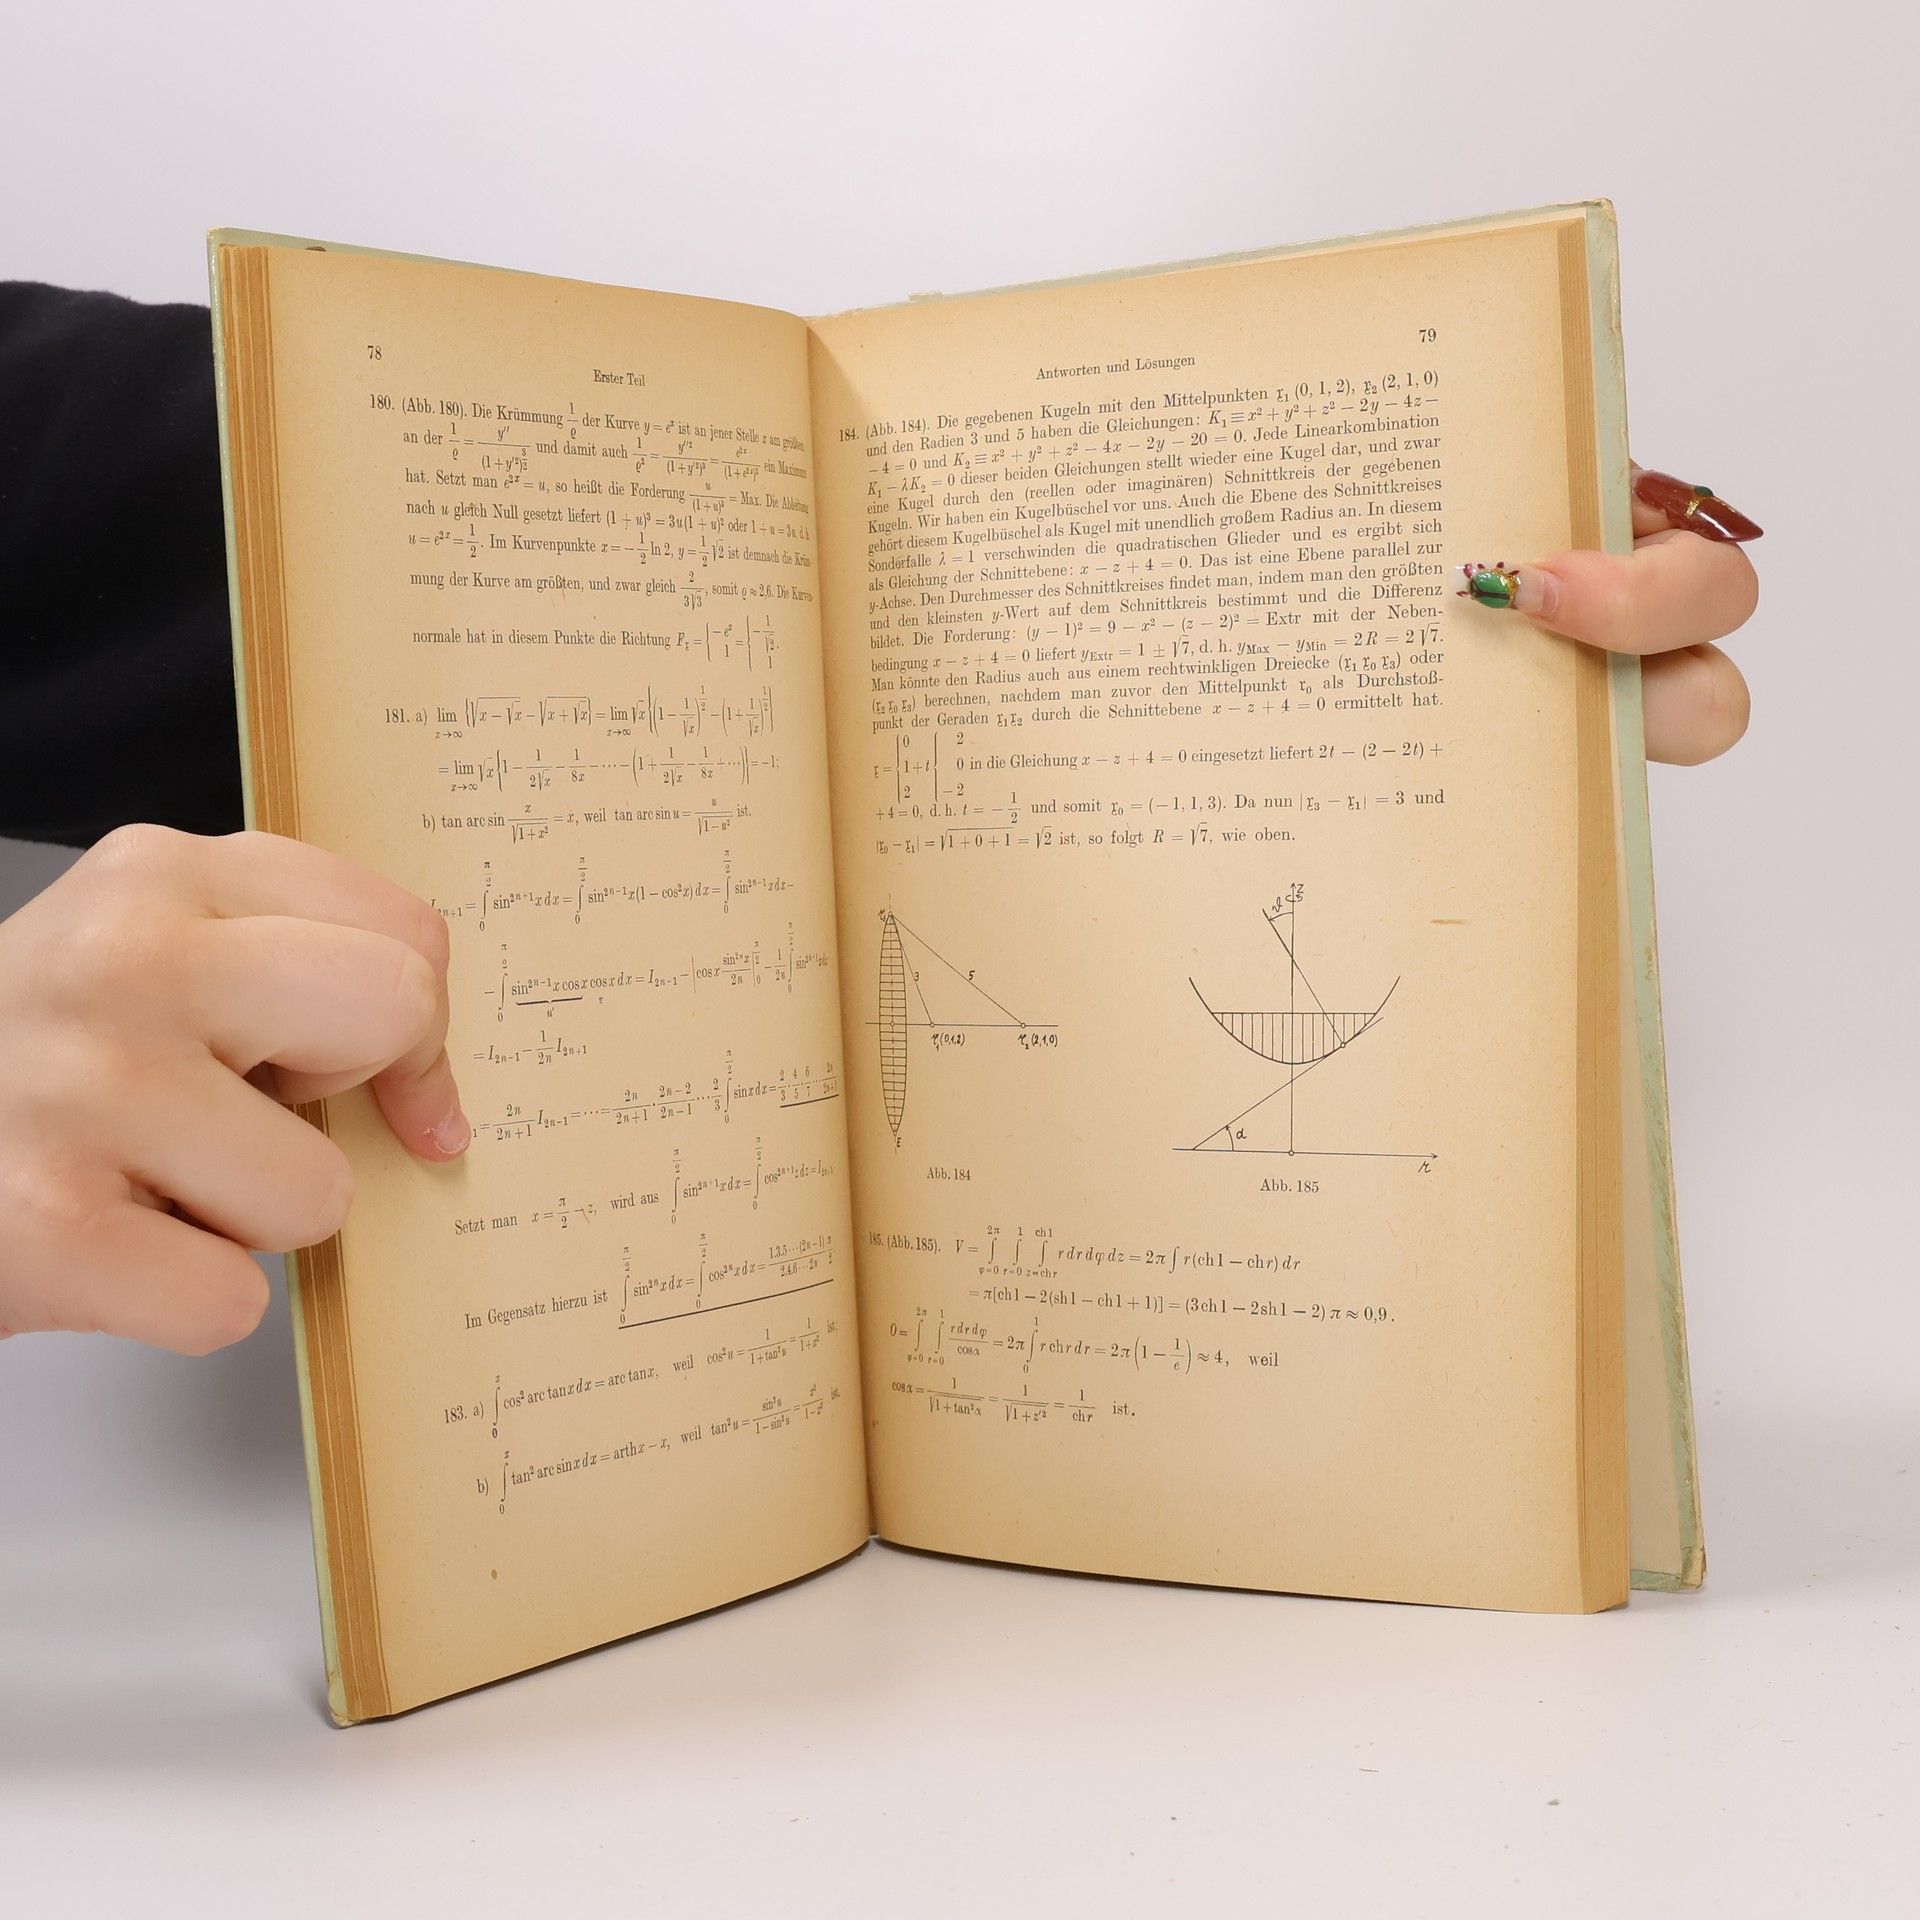 78
Erster Teil
180. (Abb. 180). Die Krümmung 1/ϱ der Kurve y = eˣ ist an jener Stelle x am größten,
an der 1/ϱ = y''/(1+y'²)^(3/2) und damit auch 1/ϱ² = y''²/(1+y'²)³ = e²ˣ/(1+e²ˣ)³ ein Maximum
hat. Setzt man e²ˣ = u, so heißt die Forderung u/(1+u)³ = Max. Die Ableitung
nach u gleich Null gesetzt liefert (1 + u)³ = 3u(1 + u)² oder 1 + u = 3u, d. h.
u = e²ˣ = 1/2. Im Kurvenpunkte x = −1/2 ln 2, y = 1/2 √2 ist demnach die Krüm-
mung der Kurve am größten, und zwar gleich 2/(3√3), somit ϱ ≈ 2,6. Die Kurven-
normale hat in diesem Punkte die Richtung F_𝔵 = {−eˣ, 1} = {−1/√2, 1}.
181. a) lim_{x→∞} {√(x − √x) − √(x + √x)} = lim_{x→∞} √x {(1 − 1/√x)^(1/2) − (1 + 1/√x)^(1/2)}
= lim_{x→∞} √x {1 − 1/(2√x) − 1/(8x) − ··· − (1 + 1/(2√x) − 1/(8x) + ···)} = −1;
b) tan arc sin x/√(1 + x²) = x, weil tan arc sin u = u/√(1 − u²) ist.
I₂ₙ₊₁ = ∫₀^(π/2) sin²ⁿ⁺¹ x dx = ∫₀^(π/2) sin²ⁿ⁻¹ x (1 − cos² x) dx = ∫₀^(π/2) sin²ⁿ⁻¹ x dx −
− ∫₀^(π/2) sin²ⁿ⁻¹ x cos x cos x dx = I₂ₙ₋₁ − |cos x sin²ⁿ x/2n|₀^(π/2) − 1/2n ∫₀^(π/2) sin²ⁿ⁺¹ x dx
u' v
= I₂ₙ₋₁ − 1/2n I₂ₙ₊₁
₁ = 2n/(2n + 1) I₂ₙ₋₁ = ··· = 2n/(2n + 1) · (2n − 2)/(2n − 1) ··· 2/3 ∫₀^(π/2) sin x dx = 2/3 · 4/5 · 6/7 ··· 2n/(2n + 1)
Setzt man x = π/2 − z, wird aus ∫₀^(π/2) sin²ⁿ⁺¹ x dx = ∫₀^(π/2) cos²ⁿ⁺¹ z dz = I₂ₙ₊₁.
Im Gegensatz hierzu ist ∫₀^(π/2) sin²ⁿ x dx = ∫₀^(π/2) cos²ⁿ x dx = 1.3.5···(2n − 1)/2.4.6···2n π/2.
183. a) ∫₀ˣ cos² arc tan x dx = arc tan x, weil cos² u = 1/(1 + tan² u) = 1/(1 + x²) ist.
b) ∫₀ˣ tan² arc sin x dx = arth x − x, weil tan² u = sin² u/(1 − sin² u) = x²/(1 − x²) ist.
79
Antworten und Lösungen
184. (Abb. 184). Die gegebenen Kugeln mit den Mittelpunkten 𝔵₁ (0, 1, 2), 𝔵₂ (2, 1, 0)
und den Radien 3 und 5 haben die Gleichungen: K₁ ≡ x² + y² + z² − 2y − 4z −
− 4 = 0 und K₂ ≡ x² + y² + z² − 4x − 2y − 20 = 0. Jede Linearkombination
K₁ − λK₂ = 0 dieser beiden Gleichungen stellt wieder eine Kugel dar, und zwar
eine Kugel durch den (reellen oder imaginären) Schnittkreis der gegebenen
Kugeln. Wir haben ein Kugelbüschel vor uns. Auch die Ebene des Schnittkreises
gehört diesem Kugelbüschel als Kugel mit unendlich großem Radius an. In diesem
Sonderfalle λ = 1 verschwinden die quadratischen Glieder und es ergibt sich
als Gleichung der Schnittebene: x − z + 4 = 0. Das ist eine Ebene parallel zur
y-Achse. Den Durchmesser des Schnittkreises findet man, indem man den größten
und den kleinsten y-Wert auf dem Schnittkreis bestimmt und die Differenz
bildet. Die Forderung: (y − 1)² = 9 − x² − (z − 2)² = Extr mit der Neben-
bedingung x − z + 4 = 0 liefert y_Extr = 1 ± √7, d. h. y_Max − y_Min = 2 R = 2 √7.
Man könnte den Radius auch aus einem rechtwinkligen Dreiecke (𝔵₁ 𝔵₀ 𝔵₃) oder
(𝔵₂ 𝔵₀ 𝔵₃) berechnen, nachdem man zuvor den Mittelpunkt 𝔵₀ als Durchstoß-
punkt der Geraden 𝔵₁𝔵₂ durch die Schnittebene x − z + 4 = 0 ermittelt hat.
𝔵 = {0, 1, 2 + t {2, 0, −2 in die Gleichung x − z + 4 = 0 eingesetzt liefert 2t − (2 − 2t) +
+ 4 = 0, d. h. t = −1/2 und somit 𝔵₀ = (−1, 1, 3). Da nun |𝔵₃ − 𝔵₁| = 3 und
|𝔵₀ − 𝔵₁| = √(1 + 0 + 1) = √2 ist, so folgt R = √7, wie oben.
3
5
𝔵₁(0,1,2)
𝔵₂(2,1,0)
E
Abb. 184
z
ϑ
α
r
Abb. 185
185. (Abb. 185). V = ∫_{φ=0}^{2π} ∫_{r=0}^{1} ∫_{z=ch r}^{ch 1} r dr dφ dz = 2π ∫ r (ch 1 − ch r) dr
= π[ch 1 − 2(sh 1 − ch 1 + 1)] = (3 ch 1 − 2 sh 1 − 2) π ≈ 0,9.
O = ∫_{φ=0}^{2π} ∫_{r=0}^{1} r dr dφ/cos α = 2π ∫₀¹ r ch r dr = 2π (1 − 1/e) ≈ 4, weil
cos α = 1/√(1 + tan² α) = 1/√(1 + z'²) = 1/ch r ist.